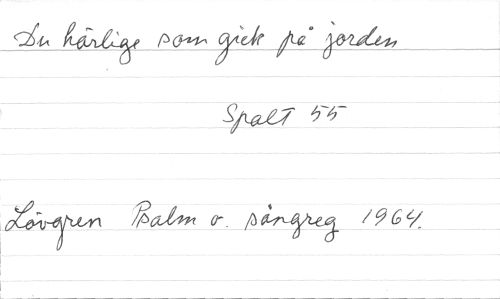 Du härlige som gick på jorden
Spalt 55
Lövgren Psalm o. sångreg 1964.